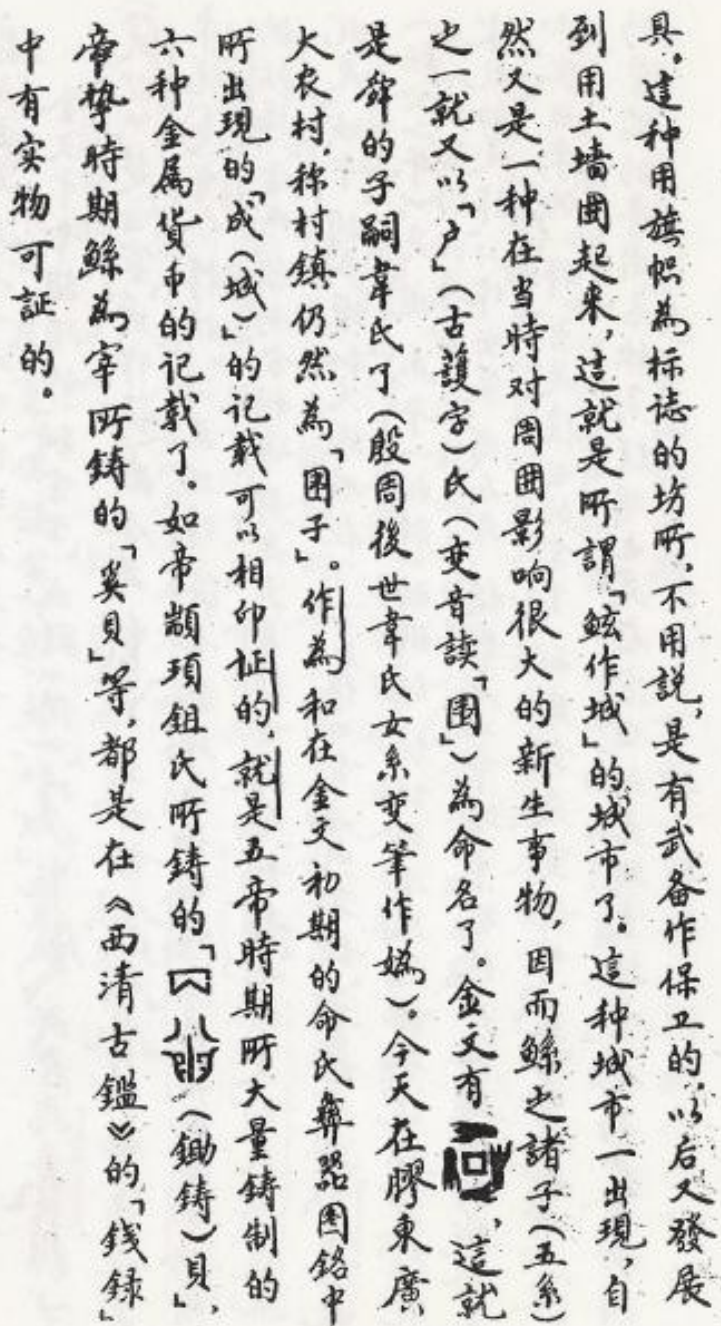 具。這种用旗帜為标誌的坊所，不用説，是有武备作保卫的，以后又發展
到用土墙圍起来，這就是所謂「鮌作城」的城市了。這种城市一出現，自
然又是一种在当時对周圍影响很大的新生事物，因而鯀之諸子（五系）
之一就又以「户」（古護字）氏（变音读「围」）為命名了。金文有，這就
是鯀的子嗣韋氏了（殷周後世韋氏女系变筆作媯）。今天在膠東廣
大农村，称村鎮仍然為「围子」。作為和在金文初期的命氏彝器图铭中
所出現的「成（城）」的记載可以相印证的，就是五帝時期所大量鋳制的
六种金属貨币的记載了。如帝顓頊鉏氏所鋳的「（鋤鋳）貝」，
帝挚時期鯀為宰所鋳的「奚貝」等，都是在《西清古鑑》的「錢録」
中有实物可証的。